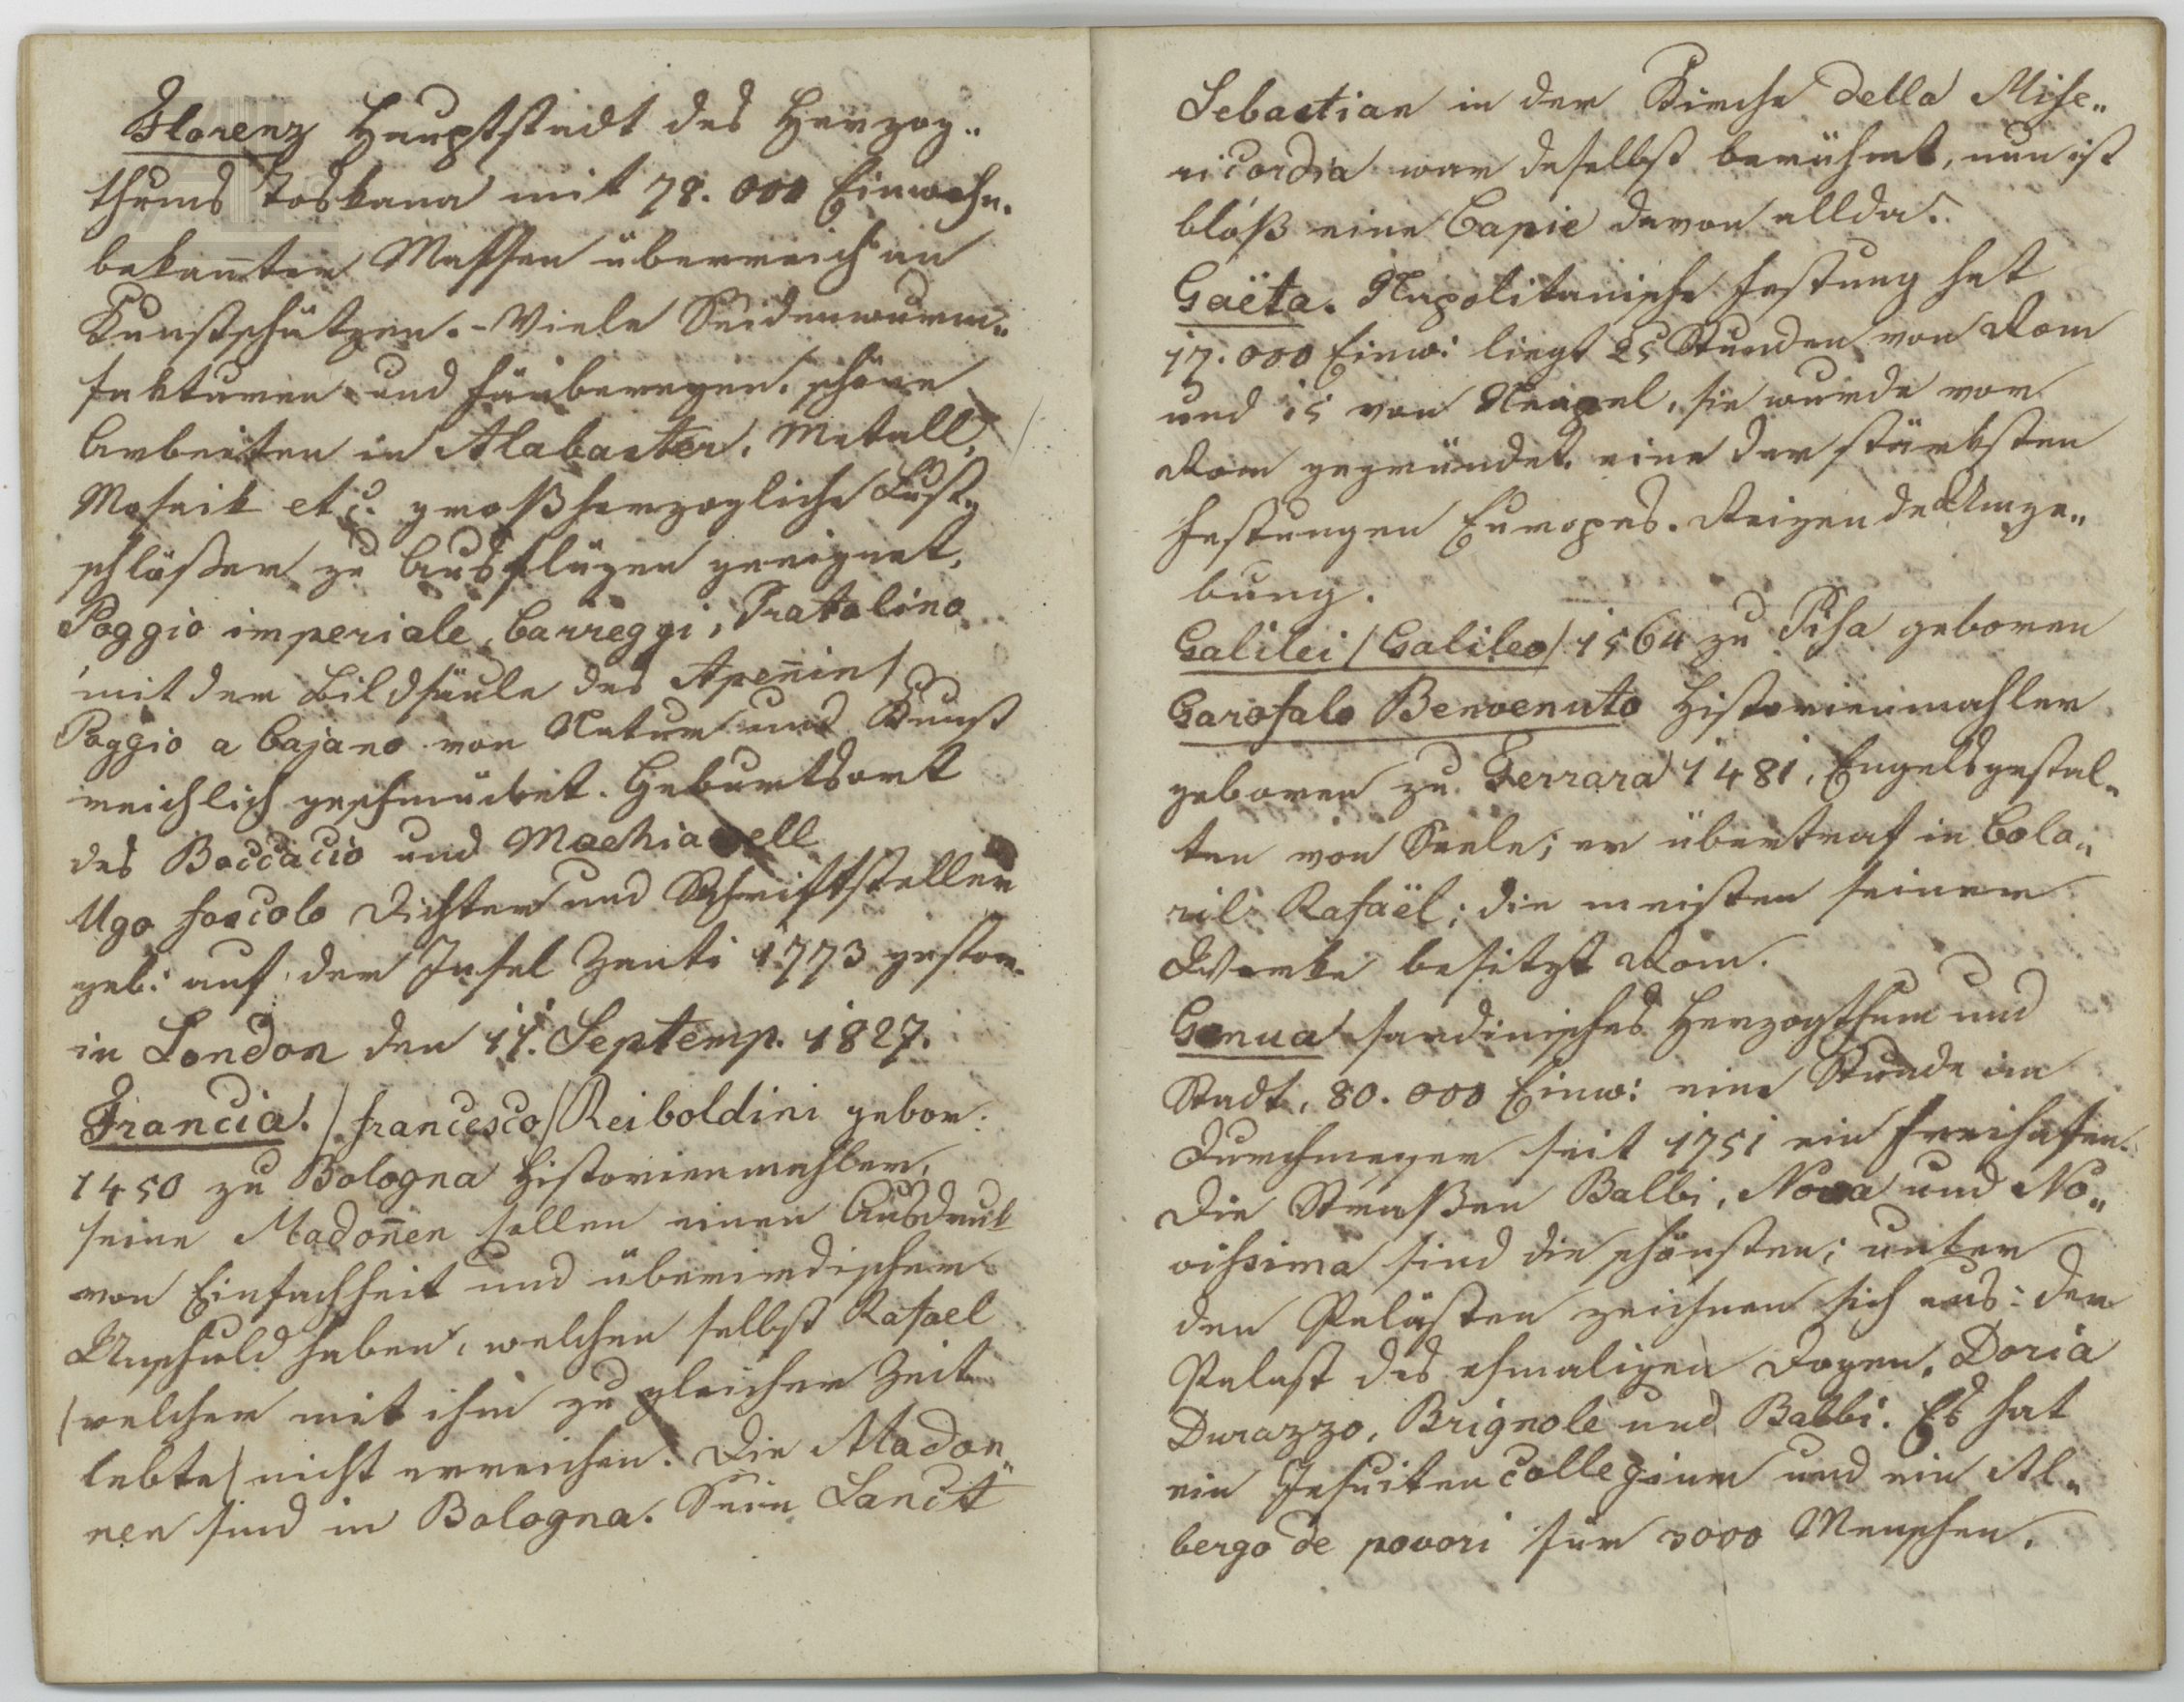 Florenz Hauptstadt des Herzog„
thums Toskana mit 78.000 Einwohn.
bekan̄ter Massen überreich an
Kunstschätzen. - Viele Seidenwurm„
fakturen und Färbereyen, schöne
Arbeiten in Alabaster, Metall,
Mosaik etc. großherzogliche Lust„
schlößer zu Ausflügen geeignet,
Poggio imperiale, Carreggi, Pratolino
/mit der Bildsäule des Apen̄in/
Poggio a Cajano von Natur und Kunst
reichlich geschmücket. Geburtsort
des Boccacio und Machiavell
Ugo Foscolo Dichter und Schriftsteller
geb: auf der Insel Zanti 1773 gestor.
in London den 11. Septemp. 1827.
Francia. /Francesco/ Reiboldini gebor:
1450 zu Bologna Historienmahler,
seine Madon̄en sollen einen Ausdruk
von Einfachheit und überirdischer
Unschuld haben, welchen selbst Rafael
/welcher mit ihm zu gleicher Zeit
lebte/ nicht erreichen. Die Madon„
nen sind in Bologna. Sein Sanct
Sebastian in der Kirche della Mise„
ricordia war daselbst berühmt, nun ist
bloß eine Copie davon allda.
Gaëta. Napolitanische Festung hat
17.000 Einw: liegt 25 Stunden von Rom
und 15 von Neapel, sie wurde vor
Rom gegründet, eine der stärksten
Festungen Europas. Reizende Umge„
bung.
Galilei /Galileo/ 1564 zu Pisa geboren
Garofalo Benvenuto Historienmahler
geboren zu Ferrara 1481, Engelsgestal„
ten von Seele; er übertraf in Colo„
rit Rafaël; die meisten seiner
Werke besitzt Rom.
Genua sardinisches Herzogthum und
Stadt, 80.000 Einw: eine Stunde im
Durchmeßer seit 1751 ein Freihafen.
Die Straßen Balbi, Nova und No„
vissima sind die schönsten; unter
den Palästen zeichnen sich aus: der
Palast des ehmaligen Dogen, Doria
Durazzo, Brignole und Balbi. Es hat
ein Jesuiten Collegium und ein Al„
bergo de povori für 3000 Menschen.